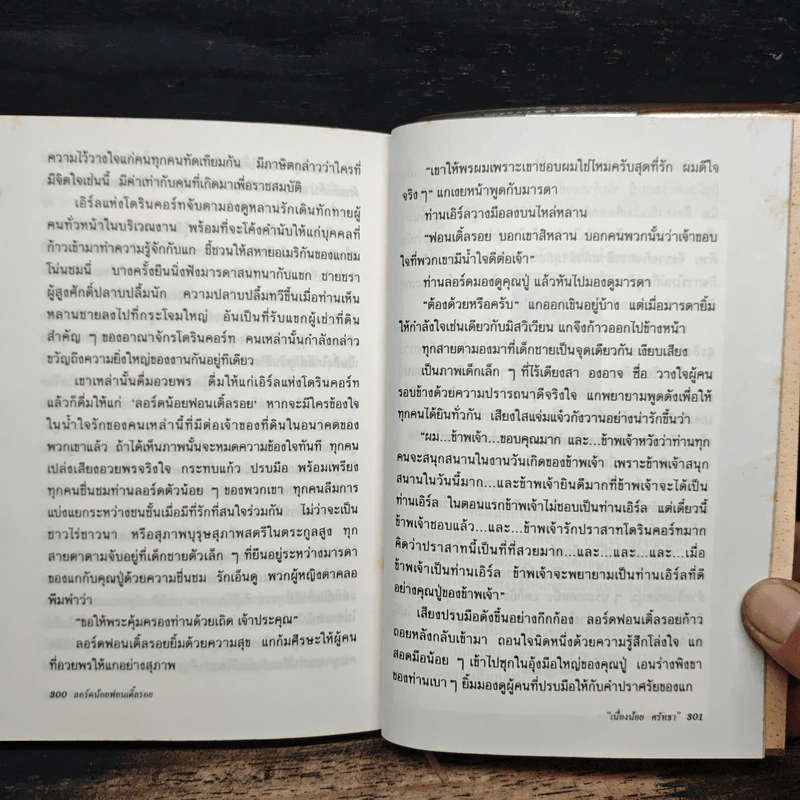 ความไว้วางใจแก่คนทุกคนทัดเทียมกัน มีภาษิตกล่าวว่าใครที่
มีจิตใจเช่นนี้ มีค่าเท่ากับคนที่เกิดมาเพื่อราชสมบัติ
เอิร์ลแห่งโดรินคอร์ทจับตามองดูหลานรักเดินทักทายผู้
คนทั่วหน้าในบริเวณงาน พร้อมที่จะโค้งคำนับให้แก่บุคคลที่
ก้าวเข้ามาทำความรู้จักกับแก ชี้ชวนให้สหายอเมริกันของแกชม
โน่นชมนี่ บางครั้งยืนนิ่งฟังมารดาสนทนากับแขก ชายชรา
ผู้สูงศักดิ์ปลาบปลื้มนัก ความปลาบปลื้มทวีขึ้นเมื่อท่านเห็น
หลานชายลงไปที่กระโจมใหญ่ อันเป็นที่รับแขกผู้เช่าที่ดิน
สำคัญ ๆ ของอาณาจักรโดรินคอร์ท คนเหล่านั้นกำลังกล่าว
ขวัญถึงความยิ่งใหญ่ของงานกันอยู่ทีเดียว
เขาเหล่านั้นดื่มอวยพร ดื่มให้แก่เอิร์ลแห่งโดรินคอร์ท
แล้วก็ดื่มให้แก่ ‘ลอร์ดน้อยฟอนเติ้ลรอย’ หากจะมีใครข้องใจ
ในน้ำใจรักของคนเหล่านี้ที่มีต่อเจ้าของที่ดินในอนาคตของ
พวกเขาแล้ว ถ้าได้เห็นภาพนั้นจะหมดความข้องใจทันที ทุกคน
เปล่งเสียงอวยพรจริงใจ กระทบแก้ว ปรบมือ พร้อมเพรียง
ทุกคนชื่นชมท่านลอร์ดตัวน้อย ๆ ของพวกเขา ทุกคนลืมการ
แบ่งแยกระหว่างชนชั้นเมื่อมีที่รักที่สนใจร่วมกัน ไม่ว่าจะเป็น
ชาวไร่ชาวนา หรือสุภาพบุรุษสุภาพสตรีในตระกูลสูง ทุก
สายตาตามจับอยู่ที่เด็กชายตัวเล็ก ๆ ที่ยืนอยู่ระหว่างมารดา
ของแกกับคุณปู่ด้วยความชื่นชม รักเอ็นดู พวกผู้หญิงตาคลอ
พึมพำว่า
“ขอให้พระคุ้มครองท่านด้วยเถิด เจ้าประคุณ”
ลอร์ดฟอนเติ้ลรอยยิ้มด้วยความสุข แกก้มศีรษะให้ผู้คน
ที่อวยพรให้แกอย่างสุภาพ
300 ลอร์ดน้อยฟอนเติ้ลรอย
“เขาให้พรผมเพราะเขาชอบผมใช่ไหมครับสุดที่รัก ผมดีใจ
จริง ๆ” แกเงยหน้าพูดกับมารดา
ท่านเอิร์ลวางมือลงบนไหล่หลาน
“ฟอนเติ้ลรอย บอกเขาสิหลาน บอกคนพวกนั้นว่าเจ้าขอบ
ใจที่พวกเขามีน้ำใจดีต่อเจ้า”
ท่านลอร์ดมองดูคุณปู่ แล้วหันไปมองดูมารดา
“ต้องด้วยหรือครับ” แกออกเขินอยู่บ้าง แต่เมื่อมารดายิ้ม
ให้กำลังใจเช่นเดียวกับมิสวิเวียน แกจึงก้าวออกไปข้างหน้า
ทุกสายตามองมาที่เด็กชายเป็นจุดเดียวกัน เงียบเสียง
เป็นภาพเด็กเล็ก ๆ ที่ไร้เดียงสา องอาจ ซื่อ วางใจผู้คน
รอบข้างด้วยความปรารถนาดีจริงใจ แกพยายามพูดดังเพื่อให้
ทุกคนได้ยินทั่วกัน เสียงใสแจ่มแจ๋วกังวานอย่างน่ารักขึ้นว่า
“ผม...ข้าพเจ้า...ขอบคุณมาก และ...ข้าพเจ้าหวังว่าท่านทุก
คนจะสนุกสนานในงานวันเกิดของข้าพเจ้า เพราะข้าพเจ้าสนุก
สนานในวันนี้มาก...และข้าพเจ้ายินดีมากที่ข้าพเจ้าจะได้เป็น
ท่านเอิร์ล ในตอนแรกข้าพเจ้าไม่ชอบเป็นท่านเอิร์ล แต่เดี๋ยวนี้
ข้าพเจ้าชอบแล้ว...และ...ข้าพเจ้ารักปราสาทโดรินคอร์ทมาก
คิดว่าปราสาทนี้เป็นที่ที่สวยมาก...และ...และ...และ...เมื่อ
ข้าพเจ้าเป็นท่านเอิร์ล ข้าพเจ้าจะพยายามเป็นท่านเอิร์ลที่ดี
อย่างคุณปู่ของข้าพเจ้า”
เสียงปรบมือดังขึ้นอย่างกึกก้อง ลอร์ดฟอนเติ้ลรอยก้าว
ถอยหลังกลับเข้ามา ถอนใจนิดหนึ่งด้วยความรู้สึกโล่งใจ แก
สอดมือน้อย ๆ เข้าไปซุกในอุ้งมือใหญ่ของคุณปู่ เอนร่างพิงขา
ของท่านเบา ๆ ยิ้มมองดูผู้คนที่ปรบมือให้กับคำปราศรัยของแก
“เนื่องน้อย ศรัทธา” 301